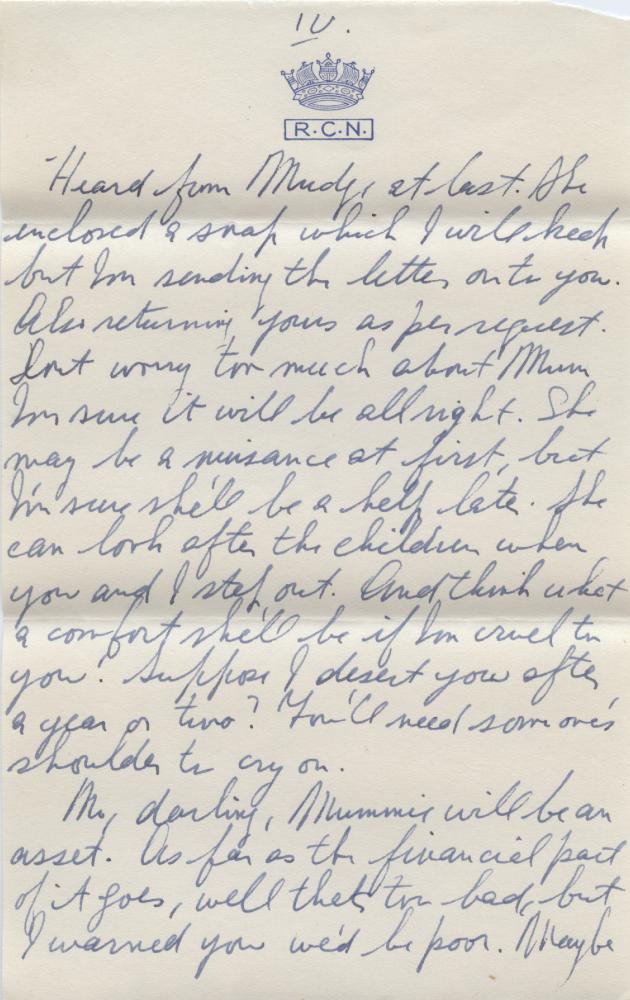 IV.
R.C.N.
Heard from Mudge at last. She
enclosed a snap which I will keep
but Im sending the letter on to you.
Also returning yours as per request.
Dont worry too much about Mum
Im sure it will be allright. She
may be a nuisance at first, but
I'm sure she'll be a help later. She
can look after the children when
you and I step out. And think what
a comfort she'll be if Im cruel to
you! Suppose I desert you after
a year or two? You'll need someone's
shoulder to cry on.
No, darling, Mummie will be an
asset. As far as the financial part
of it goes, well thats too bad, but
I warned you we'd be poor. Maybe